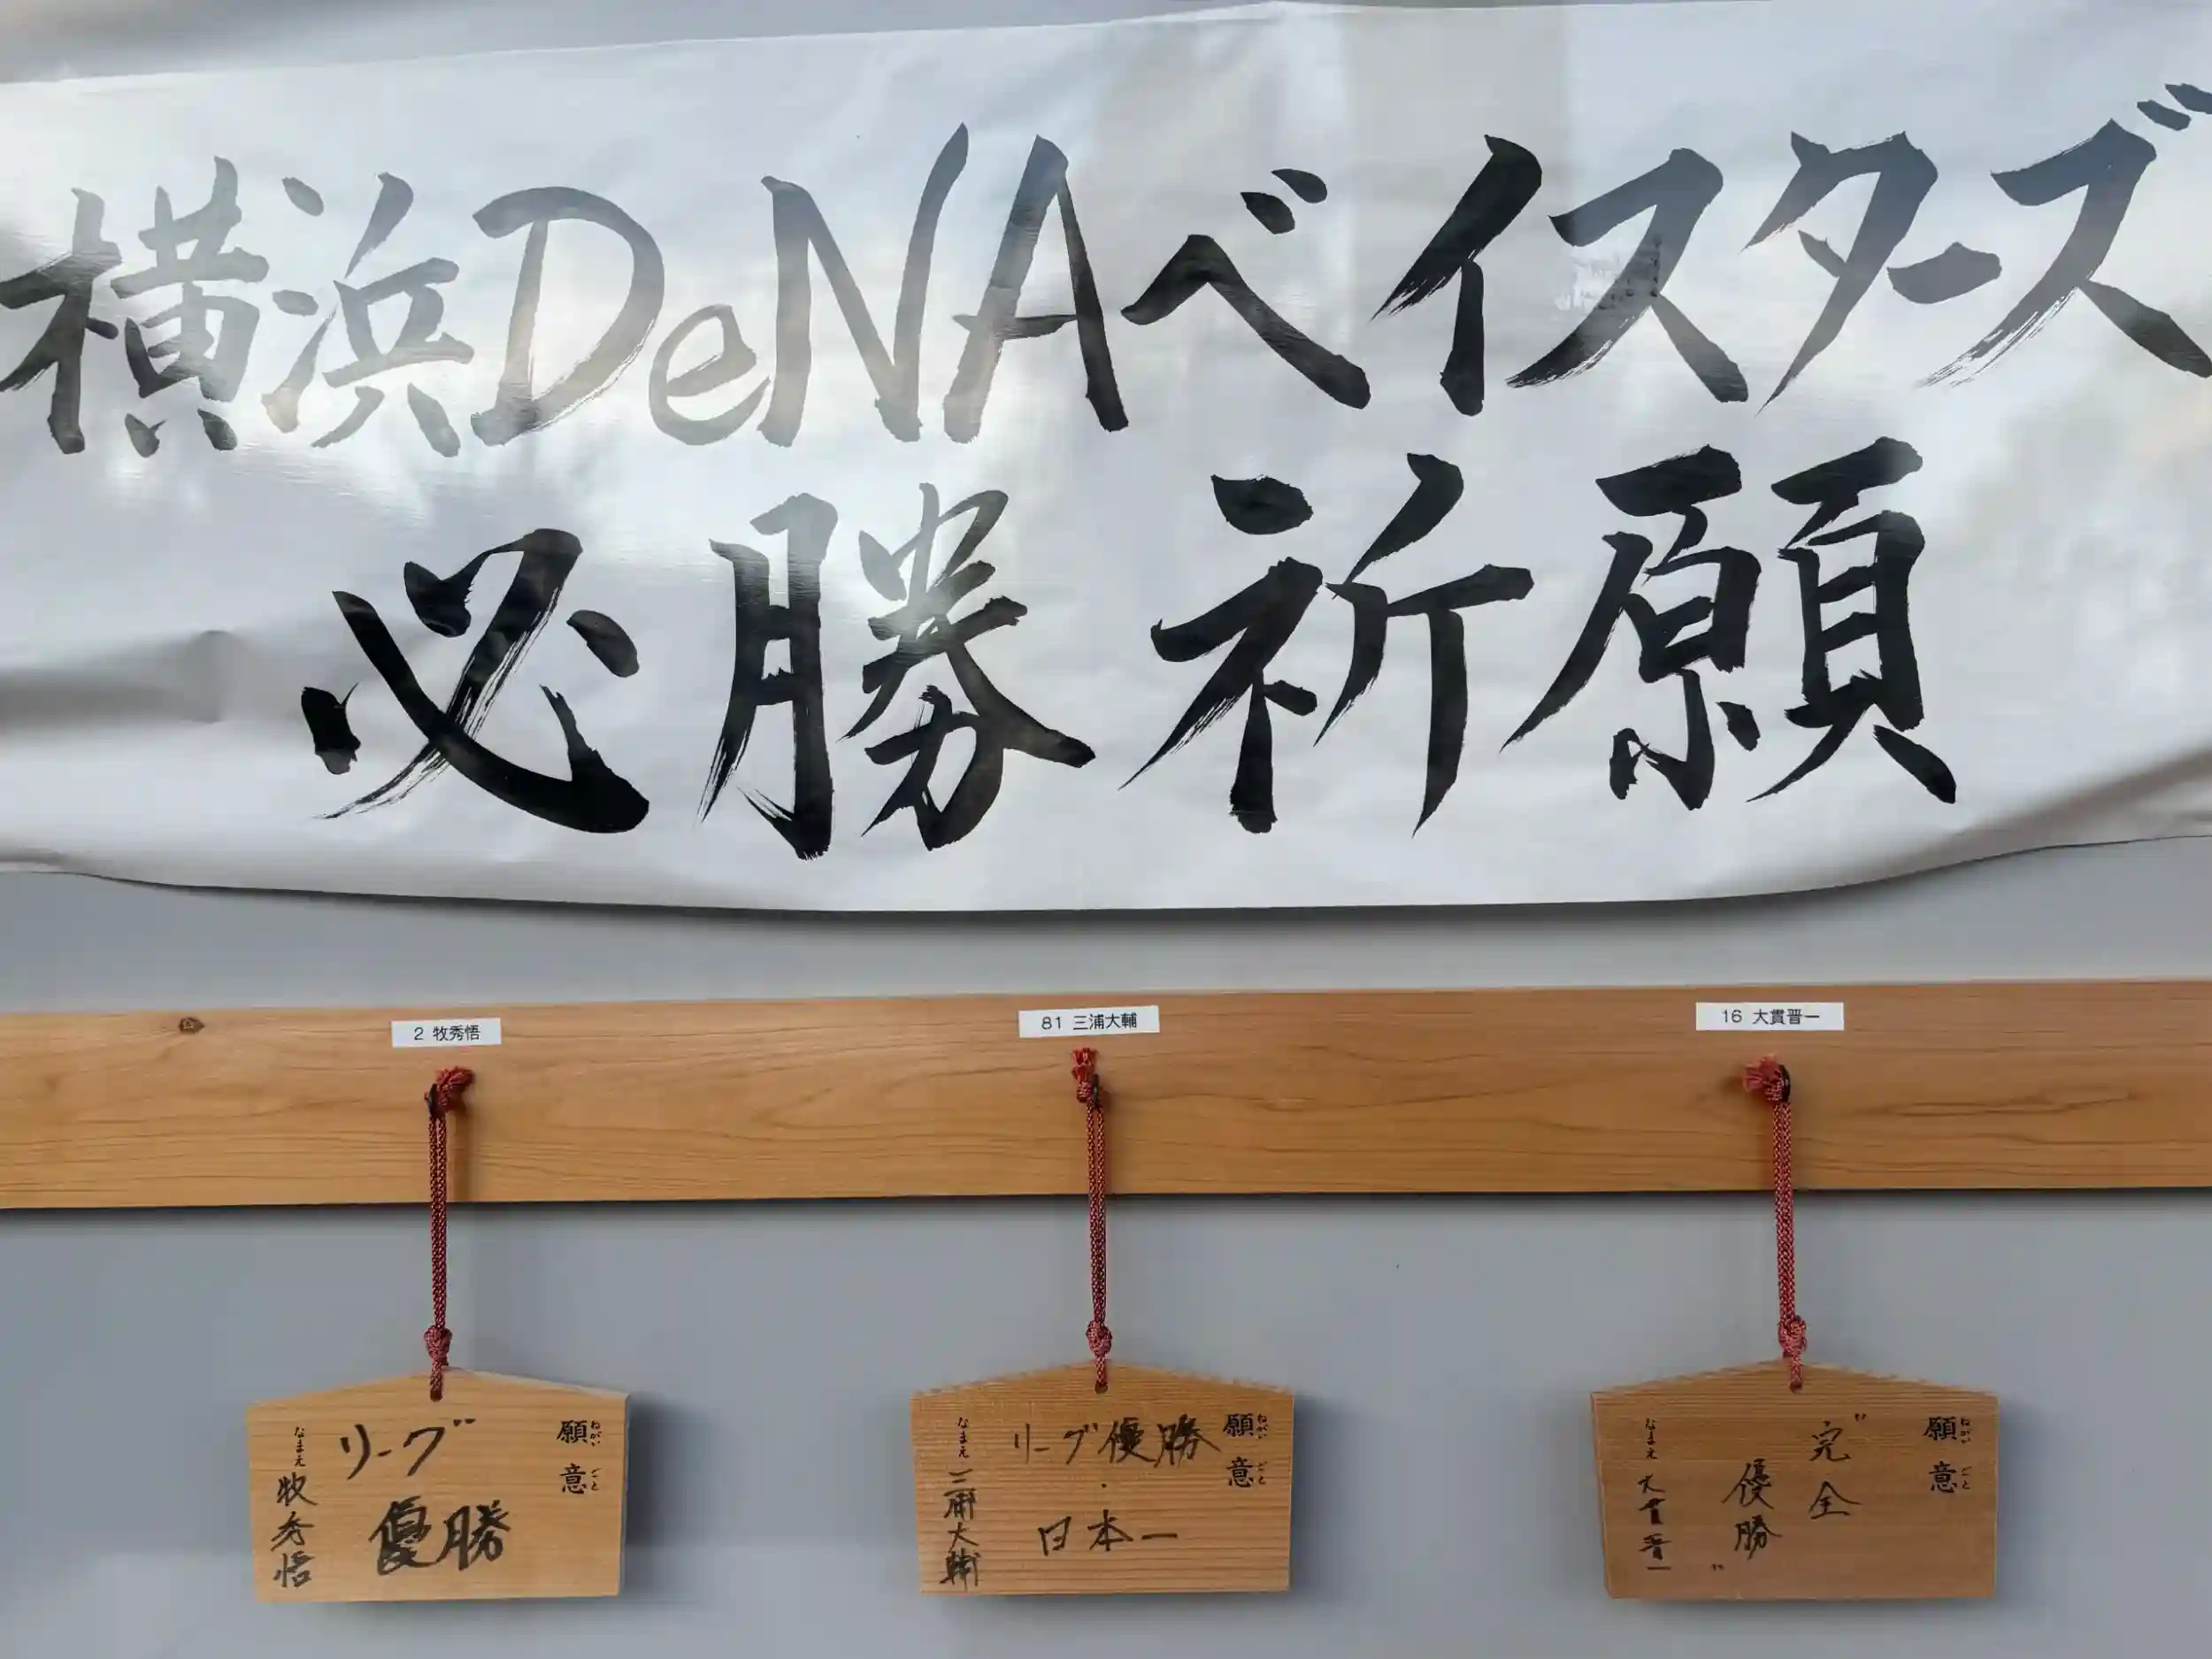 横浜DeNAベイスターズ
必勝祈願
2 牧秀悟
81 三浦大輔
16 大貫晋一
願意
ねがい ごと
リーグ
優勝
なまえ
牧秀悟
願意
ねがい ごと
リーグ優勝
・
日本一
なまえ
三浦大輔
願意
ねがい ごと
"完全
優勝"
なまえ
大貫晋一